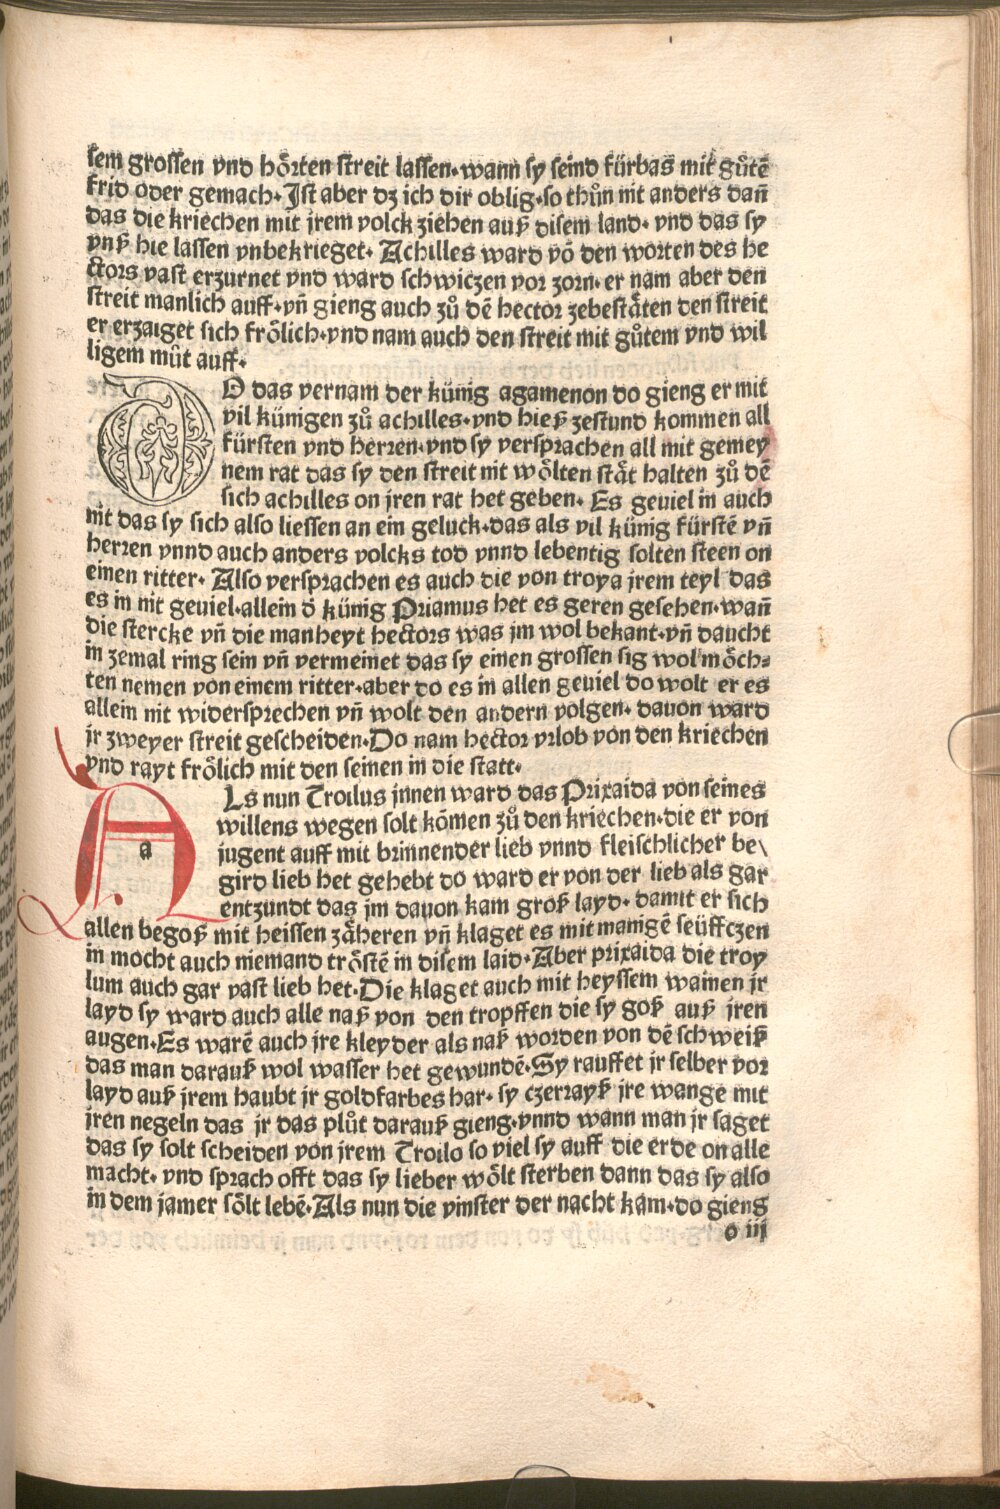 sem grossen vnd hoͤrten streit lassen·wann sy seind fürbas mit guͦtē
frid oder gemach·Jst aber dz ich dir oblig·so thuͦn nit anders dañ
das die kriechen mit jrem volck ziehen auß disem land· vnd das sy
vnß hie lassen vnbekrieget· Achilles ward võ den worten des he
ctors vast erzurnet vnd ward schwiczen vor zorn·er nam aber den
streit manlich auff·vñ gieng auch zuͦ dē hector zebestaͤten den streit
er erzaiget sich froͤlich·vnd nam auch den streit mit guͦtem vnd wil
ligem muͦt auff·
DO das vernam der künig agamenon do gieng er mit
vil künigen zuͦ achilles·vnd hieß zestund kommen all
fürsten vnd herren·vnd sy versprachen all mit gemey
nem rat das sy den streit nit woͤlten staͤt halten zuͦ dē
sich achilles on jren rat het geben· Es geuiel in auch
nit das sy sich also liessen an ein geluck·das als vil künig fürstē vñ
herren vnnd auch anders volcks tod vnnd lebentig solten steen on
einen ritter· Also versprachen es auch die von troya jrem teyl das
es in nit geuiel·allein d̄ künig Priamus het es geren gesehen·wañ
die stercke vñ die manheyt hectors was jm wol bekant·vñ daucht
in zemal ring sein vñ vermeinet das sy einen grossen sig wol moͤch⸗
ten nemen von einem ritter·aber do es in allen geuiel do wolt er es
allein nit widersprechen vñ wolt den andern volgen· dauon ward
jr zweyer streit gescheiden·Do nam hector vrlob von den kriechen
vnd rayt froͤlich mit den seinen in die statt·
a
ALs nun Troilus jnnen ward das Prixaida von seines
willens wegen solt kōmen zuͦ den kriechen·die er von
jugent auff mit brinnender lieb vnnd fleischlicher be\
gird lieb het gehebt do ward er von der lieb als gar
entzundt das jm dauon kam groß layd· damit er sich
allen begoß mit heissen zaͤheren vñ klaget es mit manigē seüffczen
in mocht auch niemand troͤstē in disem laid·Aber prixaida die troy
lum auch gar vast lieb het·Die klaget auch mit heyssem wainen jr
layd sy ward auch alle naß von den tropffen die sy goß auß jren
augen·Es warē auch jre kleyder als naß worden von dē schweiß
das man darauß wol wasser het gewundē·Sy rauffet jr selber vor
layd auß jrem haubt jr goldfarbes har· sy czerrayß jre wange mit
jren negeln das jr das pluͦt darauß gieng·vnnd wann man jr saget
das sy solt scheiden von jrem Troilo so viel sy auff die erde on alle
macht· vnd sprach offt das sy lieber woͤlt sterben dann das sy also
in dem jamer soͤlt lebē·Als nun die vinster der nacht kam·do gieng
o iij